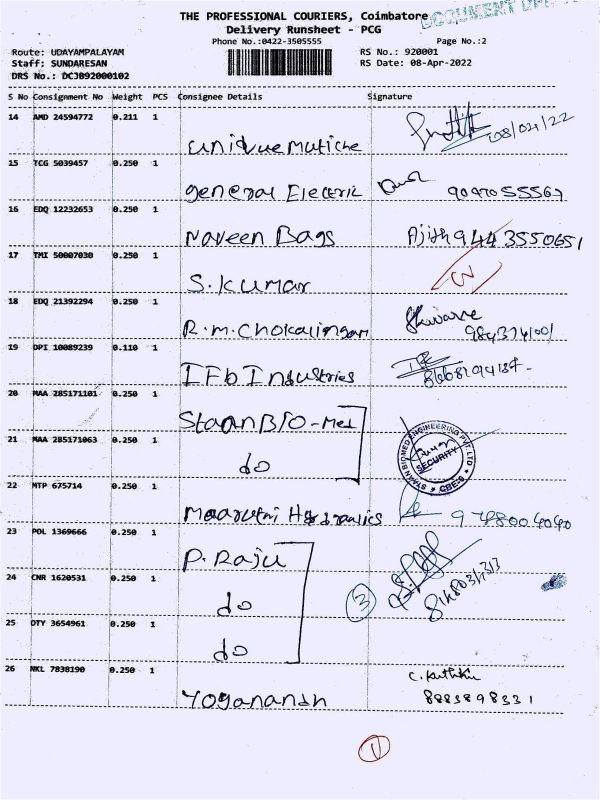 THE PROFESSIONAL COURIERS, Coimbatore
Delivery Runsheet - PCG
DOCUMENT
Phone No.:0422-3505555 Page No.:2
Route: UDAYAMPALAYAM RS No.: 920001
Staff: SUNDARESAN RS Date: 08-Apr-2022
DRS No.: DCJB92000102
S No Consignment No Weight PCS Consignee Details Signature
14 AMD 24594772 0.211 1
08/04/22
15 TCG 5039457 0.250 1
general Electric
16 EDQ 12232653 0.250 1
Naveen Bags Ajith 9443550651
17 TMI 50007030 0.250 1
S. Kumar
18 EDQ 21392294 0.250 1
R.m. Chokalingam
19 DPI 10089239 0.110 1
IFb Industries
20 MAA 285171101 0.250 1
Staan BIO-Med
21 MAA 285171063 0.250 1
do
STAAN BIOMED ENGINEERING PVT LTD
SECURITY
CBE-6
22 MTP 675714 0.250 1
23 POL 1369666 0.250 1
P. Raju
24 CNR 1620531 0.250 1
do 3
25 OTY 3654961 0.250 1
do
26 NKL 7838190 0.250 1
Yoganandh 8883898331
1